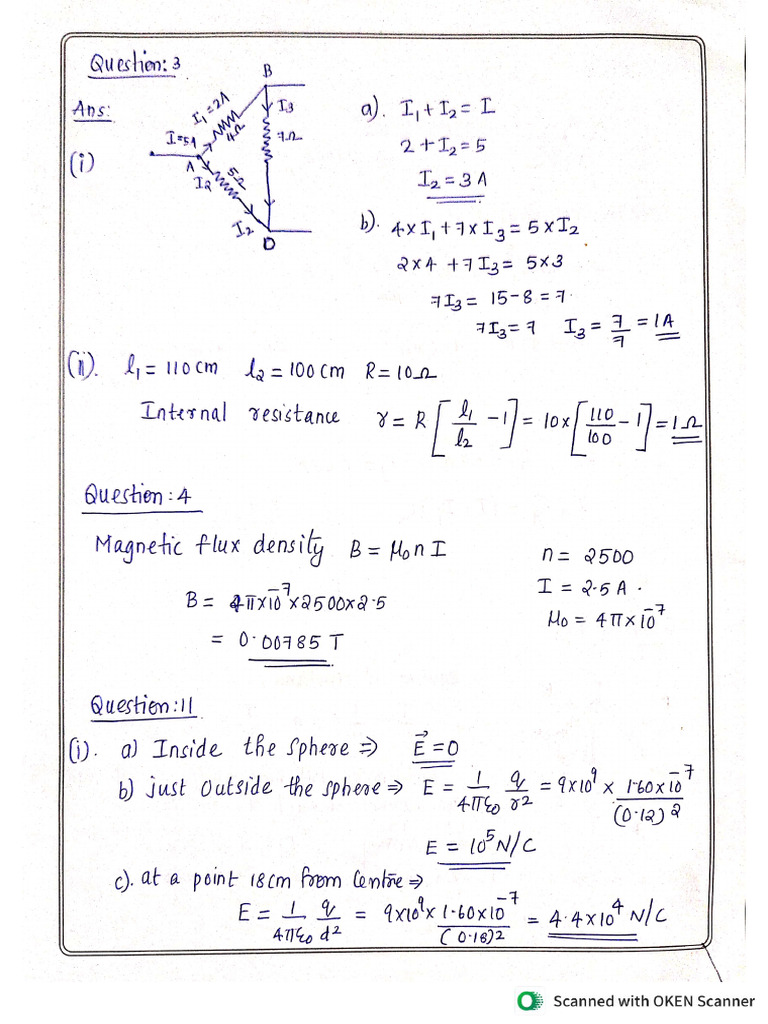 Question: 3
Ans:
(i)
B
I₁=2A
4Ω
I₃
7Ω
I=5A
A
I₂
5Ω
I₂
D
a). I₁ + I₂ = I
2 + I₂ = 5
I₂ = 3A
b). 4×I₁ + 7×I₃ = 5×I₂
2×4 + 7I₃ = 5×3
7I₃ = 15-8 = 7.
7I₃ = 7 I₃ = 7/7 = 1A
(ii). l₁ = 110 cm l₂ = 100 cm R = 10Ω
Internal resistance r = R [l₁/l₂ - 1] = 10×[110/100 - 1] = 1Ω
Question: 4
Magnetic flux density B = μ₀nI
n = 2500
I = 2.5A.
μ₀ = 4π×10⁻⁷
B = 4π×10⁻⁷×2500×2.5
= 0.00785 T
Question: 11
(i). a) Inside the sphere ⇒ E⃗ = 0
b) just outside the sphere ⇒ E = 1/4πε₀ q/r² = 9×10⁹ × 1.60×10⁻⁷/(0.12)²
E = 10⁵ N/C
c). at a point 18cm from Centre ⇒
E = 1/4πε₀ q/d² = 9×10⁹×1.60×10⁻⁷/(0.18)² = 4.4×10⁴ N/C
Scanned with OKEN Scanner